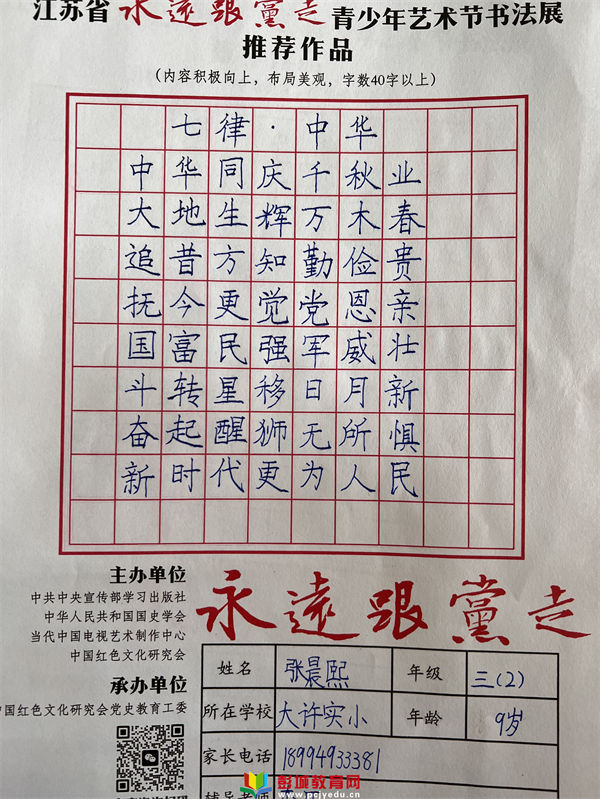 江苏省永遠跟黨走青少年艺术节书法展
推荐作品
(内容积极向上，布局美观，字数40字以上)
七律·中华
中华同庆千秋业
大地生辉万木春
追昔方知勤俭贵
抚今更觉党恩亲
国富民强军威壮
斗转星移日月新
奋起醒狮无所惧
新时代更为人民
主办单位
中共中央宣传部学习出版社
中华人民共和国国史学会
当代中国电视艺术制作中心
中国红色文化研究会
承办单位
中国红色文化研究会党史教育工委
永遠跟黨走
姓名 张晨熙 年级 三(2)
所在学校 大许实小 年龄 9岁
家长电话 18994933381
辅导老师
彭城教育网
www.pcjyedu.cn